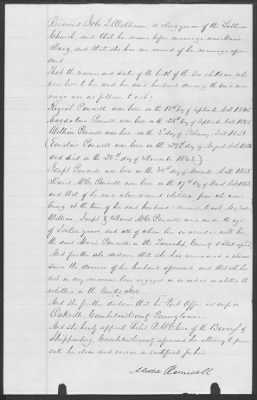 Reverend John L. Williams a clergyman of the Lutheran
Church, and that her name before marriage was Maria
and that she has no record of her marriage afore
said
That the names and date of the birth of the six children, who
were born to her and her said husband during the said mar-
riage are as follows to wit:
Connell was born on the 12th day of September A.D.
Magdalena Connell was born on the 28th day of September A.D.
William Connell was born on the 2nd day of February A.D. 1851
Connell was born on the 29th day of August A.D. 1853
and died on the 28th day of March 1862
Joseph Connell was born on the day of A.D. 1858
David Mc. Connell was born on the 17th day of A.D.
and that of his said above named children four who were
living at the time of her said husband's decease, to wit,
William, Joseph & David Mc. Connell were under the age
of Sixteen years, and all of whom now so reside with her
the said Maria Connell in the Township, County & State afore
And further she declares that she has remained a widow
since the decease of her husband aforesaid and that she has
not in any manner been engaged in or aided or abetted the
rebellion in the United States
And she further declares that her Post Office address is
Oakville, Cumberland County Pennsylvania
And she hereby appoints John P. of the Borough of
Shippensburg, Cumberland County aforesaid her attorney to prose-
cute her claim and secure a certificate for her
Maria Connell